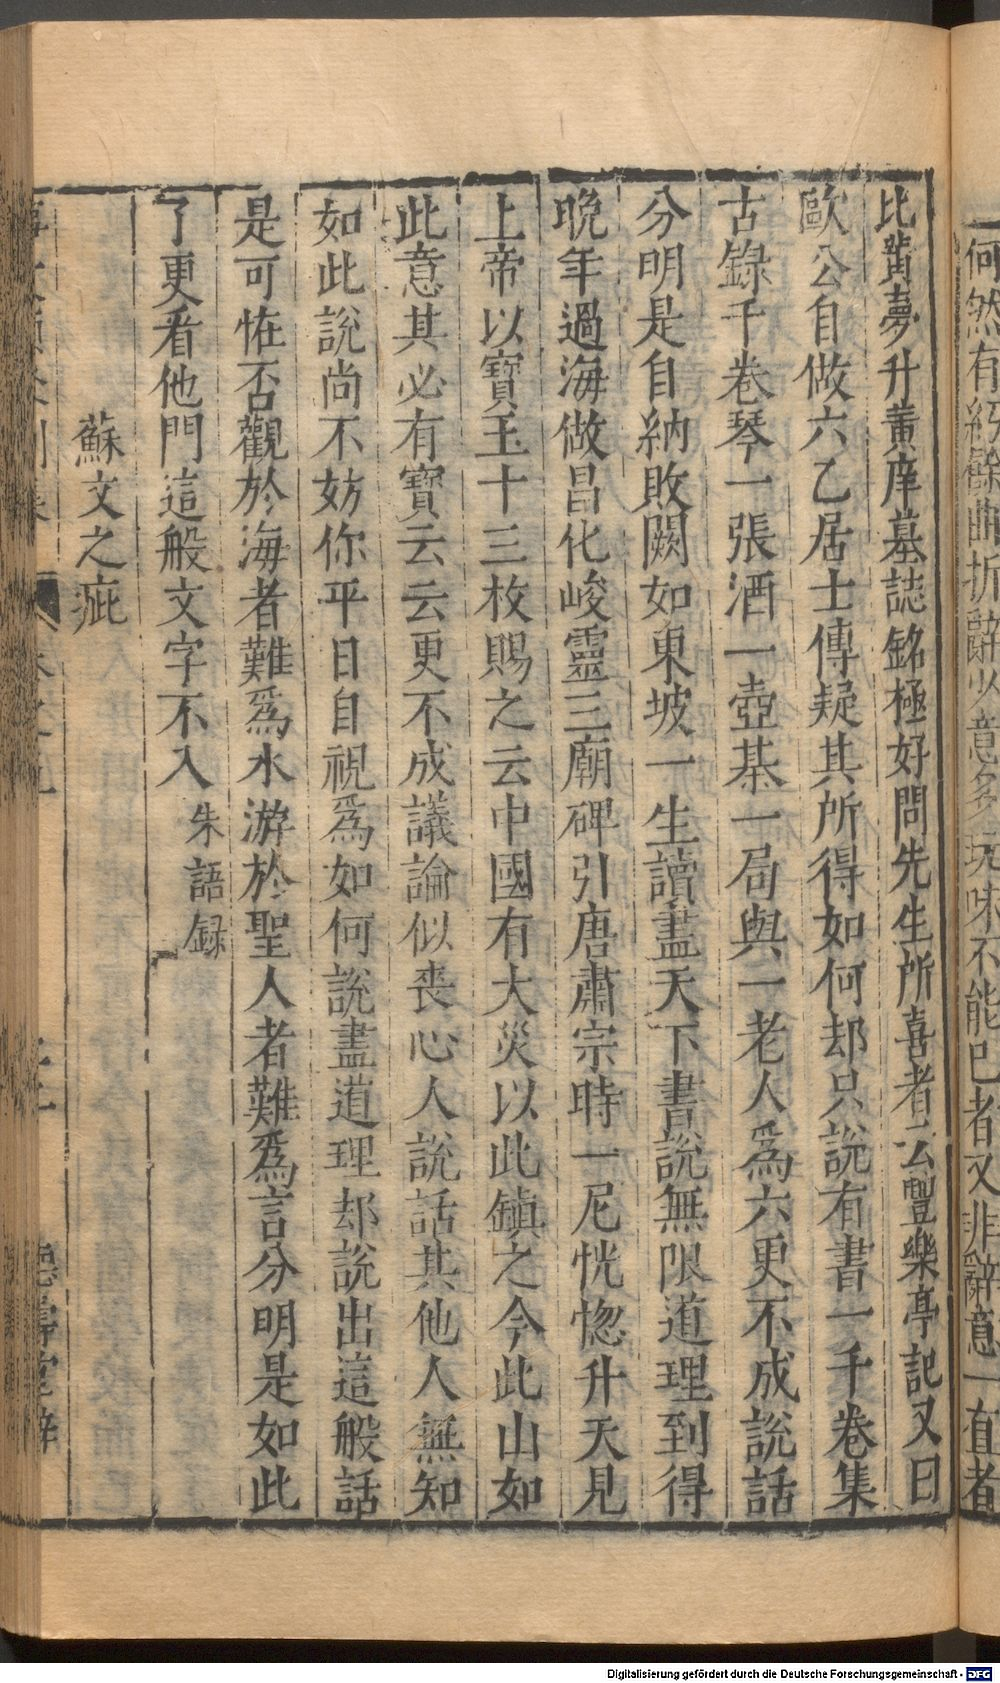 何然有紆餘曲折辭少意多玩味不能已者又非辭意一直者
比黃夢升黃庠墓誌銘極好問先生所喜者云豐樂亭記又曰
歐公自做六乙居士傳疑其所得如何却只說有書一千卷集
古錄千卷琴一張酒一壺棊一局與一老人爲六更不成說話
分明是自納敗闕如東坡一生讀盡天下書說無限道理到得
晚年過海做昌化峻靈王廟碑引唐肅宗時一尼恍惚升天見
上帝以寶玉十三枚賜之云中國有大災以此鎮之今此山如
此意其必有寶云云更不成議論似喪心人說話其他人無知
如此說尚不妨你平日自視爲如何說盡道理却說出這般話
是可恠否觀於海者難爲水游於聖人者難爲言分明是如此
了更看他門這般文字不入 朱語録
蘇文之疵
Digitalisierung gefördert durch die Deutsche Forschungsgemeinschaft - DFG